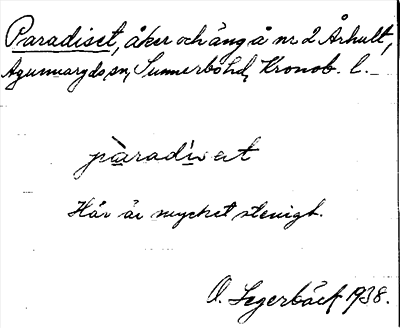 Paradiset, åker och äng å nr 2 Århult,
Agunnaryds sn, Sunnerbo hd, Kronob. l.
pàradìset
Här är mycket stenigt.
O. Segerbäck 1938.